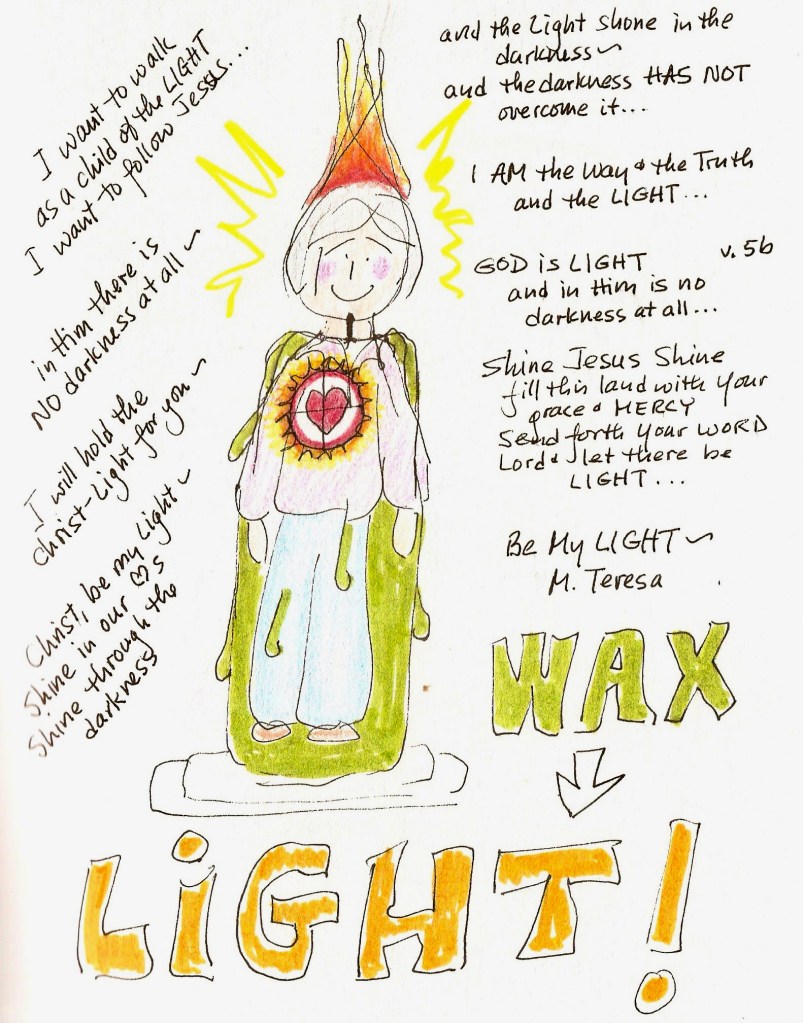 I want to walk
as a child of the LIGHT
I want to follow Jesus...
in Him there is
NO darkness at all ~
I will hold the
christ-Light for you ~
Christ, be my Light ~
Shine in our ♡s
Shine through the
darkness
and the Light shone in the
darkness ~
and the darkness HAS NOT
overcome it...
I AM the Way & the Truth
and the LIGHT...
GOD is LIGHT v. 5b
and in Him is no
darkness at all...
Shine Jesus Shine
fill this land with your
grace & MERCY
Send forth your WORD
Lord & let there be
LIGHT...
Be My LIGHT ~
M. Teresa
WAX
LiGHT!